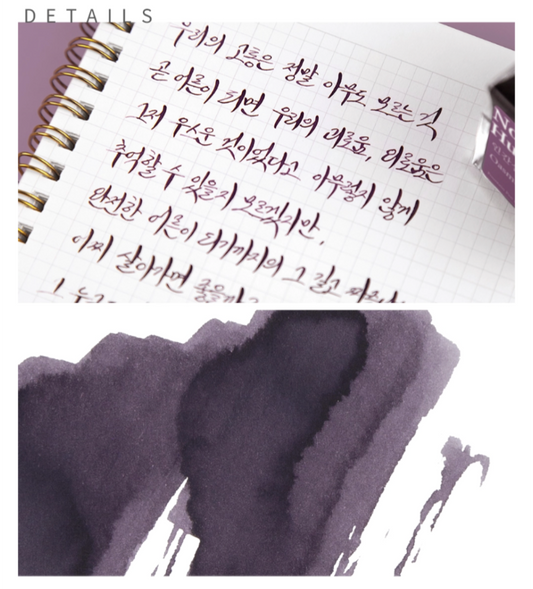 DETAILS
우리의 고통은 정말 아무도 모르는 것
곧 어른이 되면 우리의 괴로움, 외로움은
그저 우스운 것이었다고 아무렇지 않게
추억할 수 있을지 모르겠지만,
완전한 어른이 되기까지의 그 길고
어찌 살아가면 좋을까